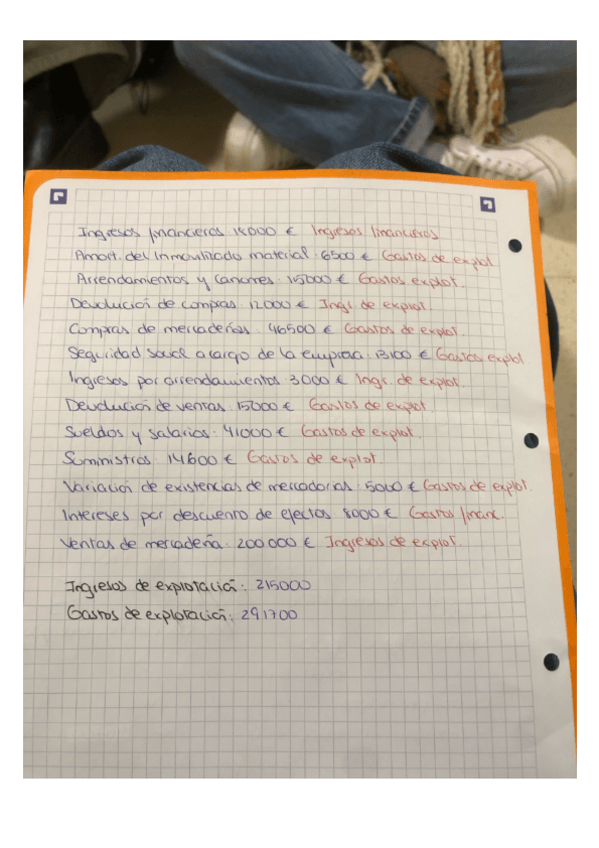 Ingresos financieros 18000 € Ingresos financieros
Amort. del inmovilizado material: 6500 € Gastos de explot
Arrendamientos y canones: 15000 € Gastos explot.
Devolución de compras: 12000 € Ingr. de explot.
Compras de mercaderías: 46500 € Gastos de explot.
Seguridad social a cargo de la empresa: 13100 € Gastos explot
Ingresos por arrendamientos 3000 € Ingr. de explot.
Devolución de ventas: 15000 € Gastos de explot.
Sueldos y salarios: 41000 € Gastos de explot.
Suministros: 14600 € Gastos de explot.
Variación de existencias de mercadorias: 5000 € Gastos de explot.
Intereses por descuento de efectos 8000 € Gastos financ.
Ventas de mercadería: 200000 € Ingresos de explot.
Ingresos de explotación: 215000
Gastos de explotación: 291700